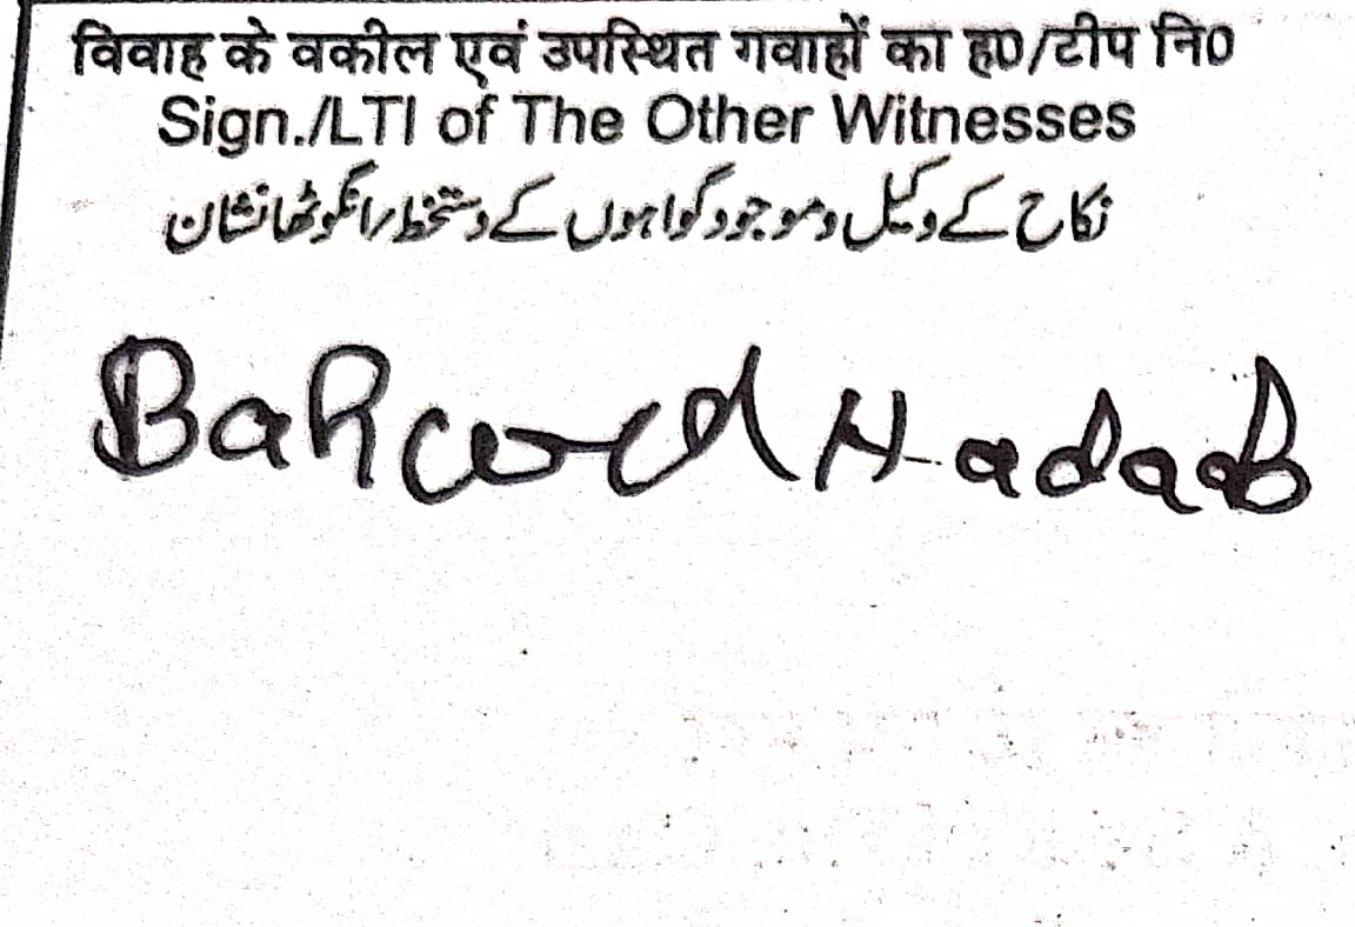 विवाह के वकील एवं उपस्थित गवाहों का ह0/टीप नि0
Sign./LTI of The Other Witnesses
نکاح کے وکیل و موجود گواہوں کے دستخط/انگوٹھا نشان